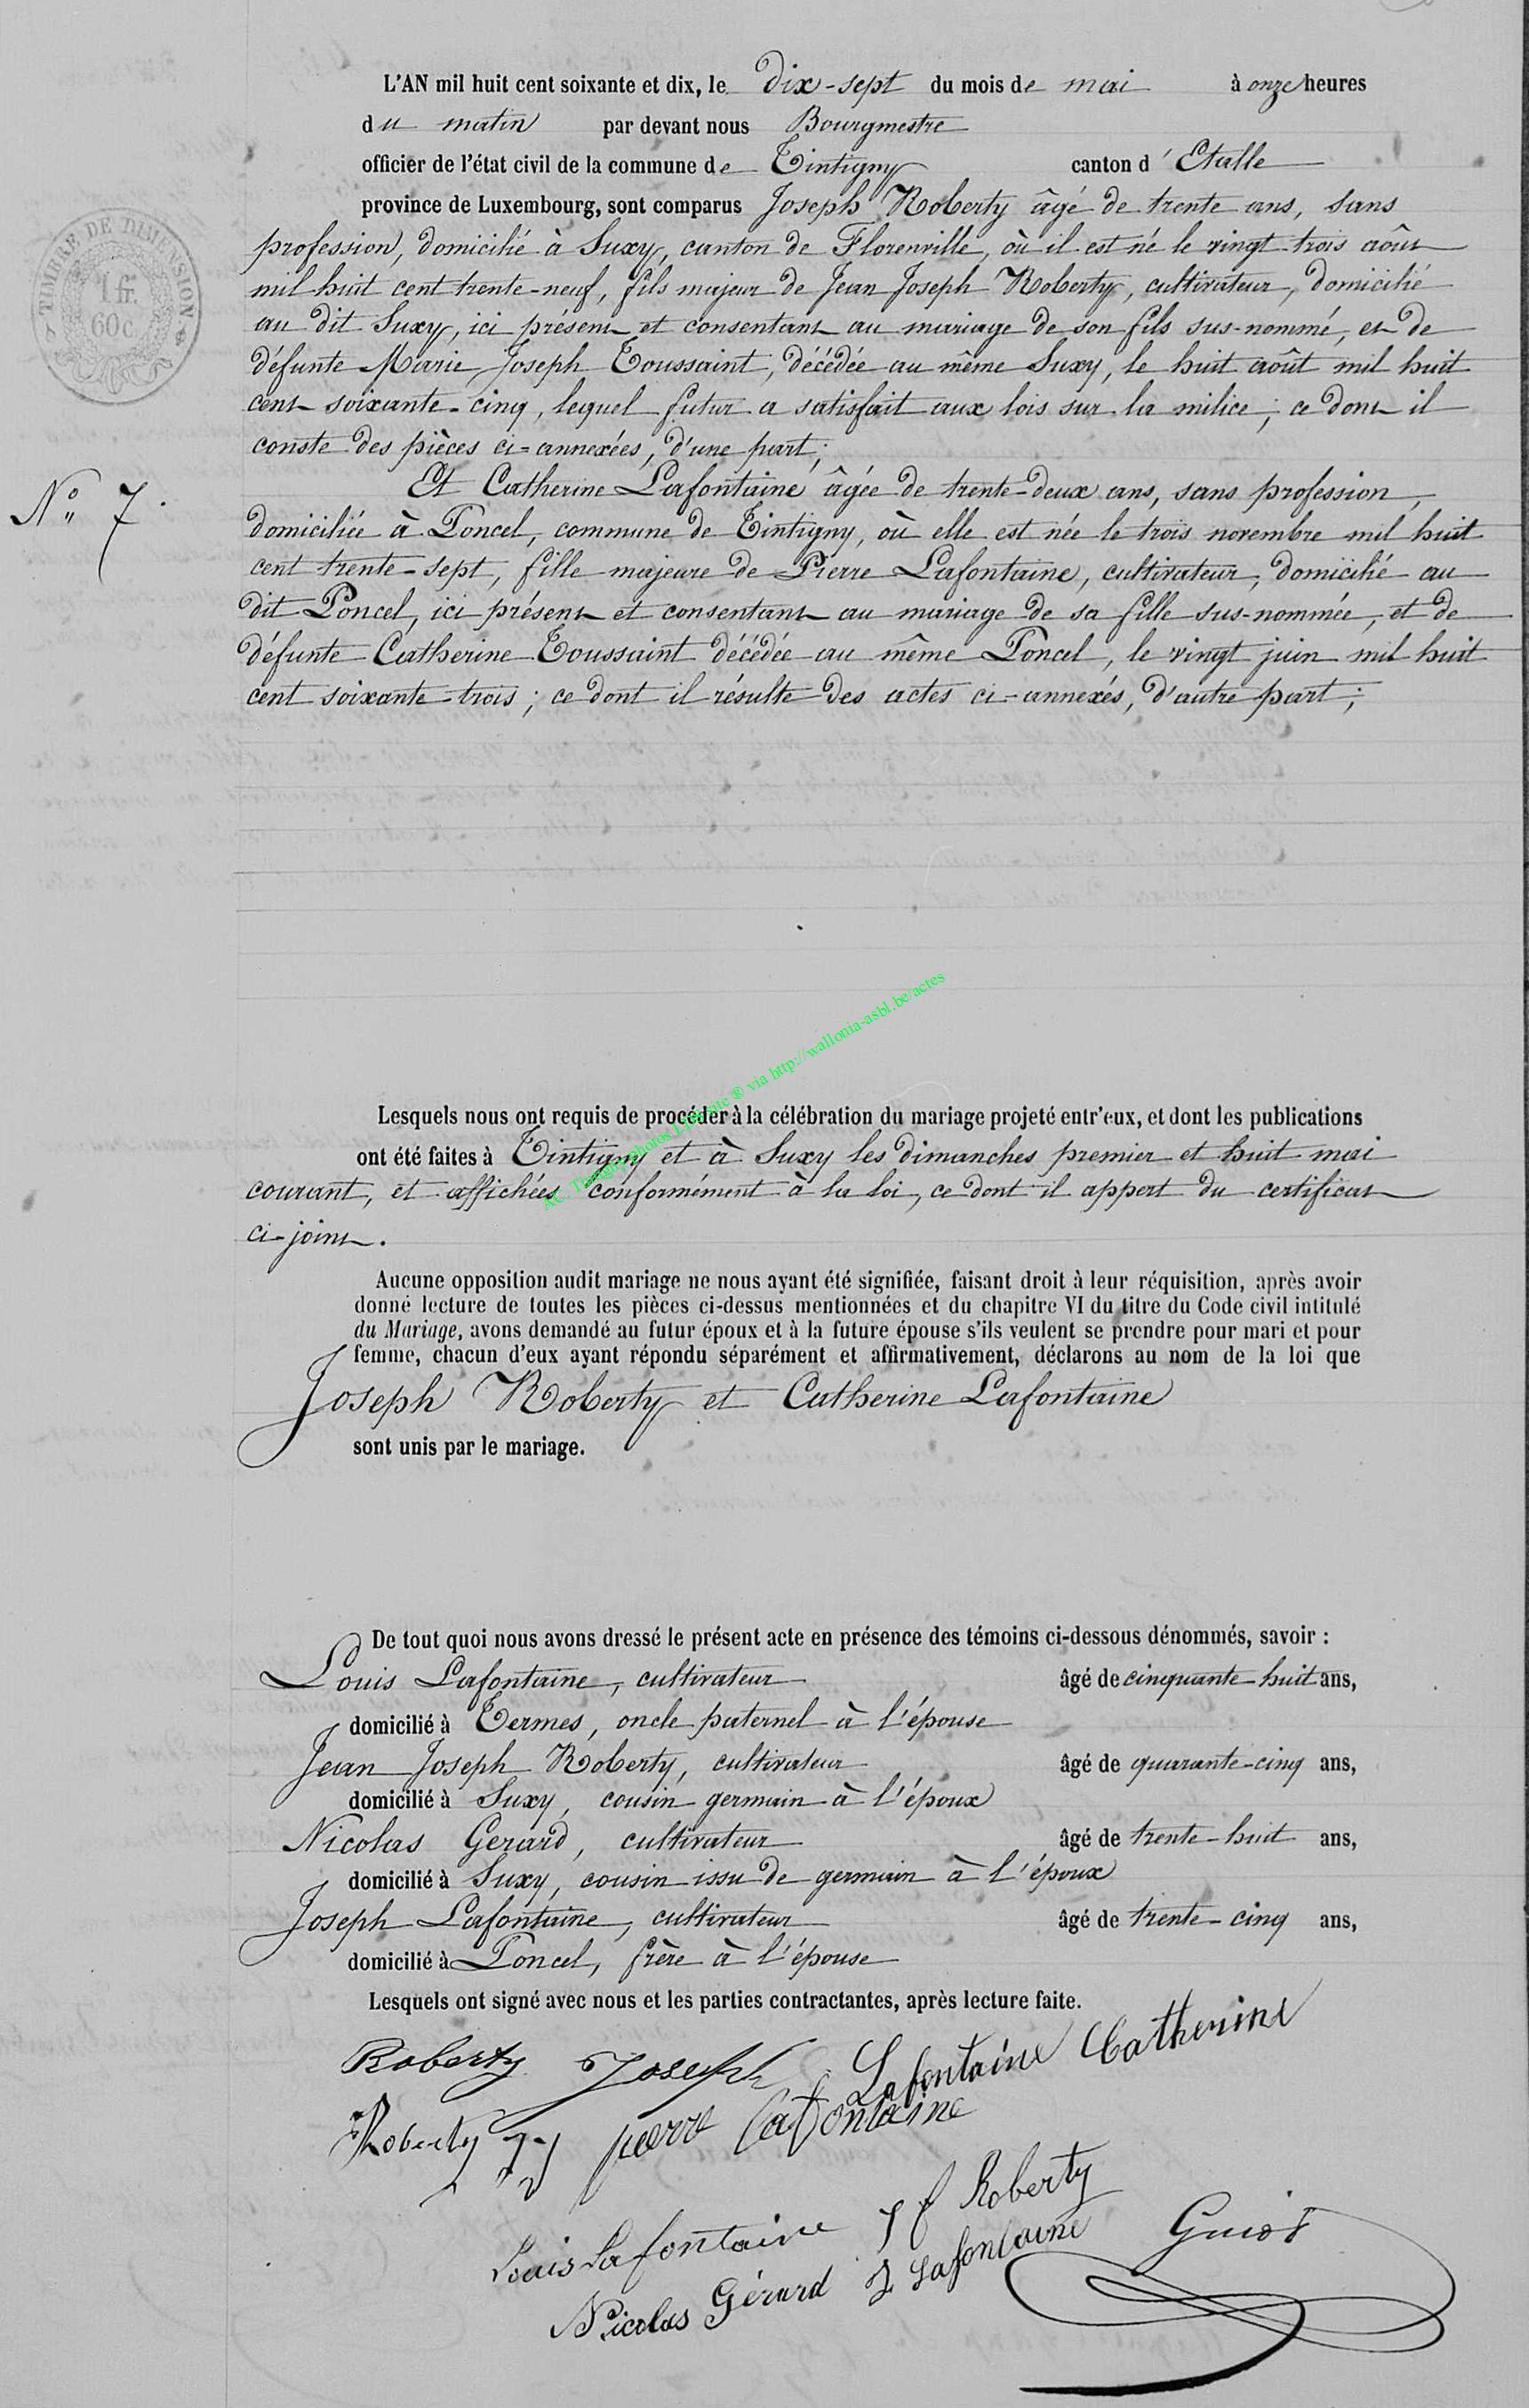 L'AN mil huit cent soixante et dix, le dix-sept du mois de mai à onze heures
du matin par devant nous Bourgmestre
officier de l'état civil de la commune de Tintigny canton d'Etalle
province de Luxembourg, sont comparus Joseph Roberty âgé de trente ans, sans
profession, domicilié à Suxy, canton de Florenville, où il est né le vingt trois août
mil huit cent trente-neuf, fils majeur de Jean Joseph Roberty, cultivateur, domicilié
au dit Suxy, ici présent et consentant au mariage de son fils sus-nommé, et de
défunte Marie Joseph Toussaint, décédée au même Suxy, le huit août mil huit
cent soixante-cinq, lequel futur a satisfait aux lois sur la milice; ce dont il
conste des pièces ci-annexées, d'une part;
N° 7.
Et Catherine Lafontaine âgée de trente-deux ans, sans profession,
domiciliée à Poncel, commune de Tintigny, où elle est née le trois novembre mil huit
cent trente-sept, fille majeure de Pierre Lafontaine, cultivateur, domicilié au
dit Poncel, ici présent et consentant au mariage de sa fille sus-nommée, et de
défunte Catherine Toussaint décédée au même Poncel, le vingt juin mil huit
cent soixante-trois; ce dont il résulte des actes ci-annexés, d'autre part;
TIMBRE DE DIMENSION
1 fr.
60 c.
Lesquels nous ont requis de procéder à la célébration du mariage projeté entr'eux, et dont les publications
ont été faites à Tintigny et à Suxy les dimanches premier et huit mai
courant, et affichées conformément à la loi, ce dont il appert du certificat
ci-joint.
Aucune opposition audit mariage ne nous ayant été signifiée, faisant droit à leur réquisition, après avoir
donné lecture de toutes les pièces ci-dessus mentionnées et du chapitre VI du titre du Code civil intitulé
du Mariage, avons demandé au futur époux et à la future épouse s'ils veulent se prendre pour mari et pour
femme, chacun d'eux ayant répondu séparément et affirmativement, déclarons au nom de la loi que
Joseph Roberty et Catherine Lafontaine
sont unis par le mariage.
via http://wallonia-asbl.be/actes
De tout quoi nous avons dressé le présent acte en présence des témoins ci-dessous dénommés, savoir :
Louis Lafontaine, cultivateur âgé de cinquante-huit ans,
domicilié à Termes, oncle paternel à l'épouse
Jean Joseph Roberty, cultivateur âgé de quarante-cinq ans,
domicilié à Suxy, cousin germain à l'époux
Nicolas Gerard, cultivateur âgé de trente-huit ans,
domicilié à Suxy, cousin issu de germain à l'époux
Joseph Lafontaine, cultivateur âgé de trente-cinq ans,
domicilié à Poncel, frère à l'épouse
Lesquels ont signé avec nous et les parties contractantes, après lecture faite.
Roberty Joseph Lafontaine Catherine
Roberty JJ pierre lafontaine
Louis Lafontaine J J Roberty
Nicolas Gérard J Lafontaine Guiot